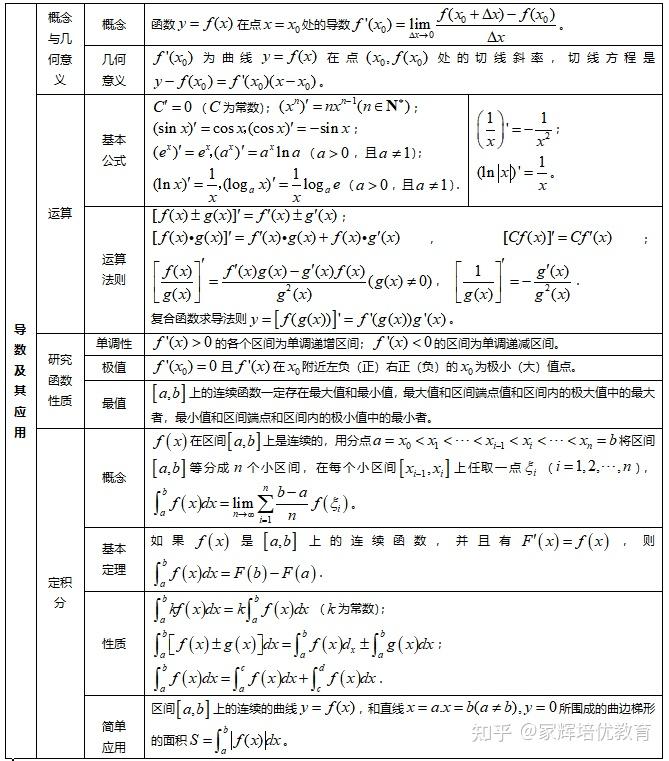 导数及其应用
概念与几何意义
概念
函数 y = f(x) 在点 x = x₀ 处的导数 f'(x₀) = lim_{Δx→0} (f(x₀ + Δx) − f(x₀))/Δx 。
几何意义
f'(x₀) 为曲线 y = f(x) 在点 (x₀, f(x₀)) 处的切线斜率，切线方程是
y − f(x₀) = f'(x₀)(x − x₀)。
运算
基本公式
C' = 0（C 为常数）；(xⁿ)' = nxⁿ⁻¹(n∈N*)；
(sin x)' = cos x,(cos x)' = −sin x；
(eˣ)' = eˣ,(aˣ)' = aˣ ln a（a > 0，且 a ≠ 1）；
(ln x)' = 1/x,(logₐ x)' = 1/x logₐ e（a > 0，且 a ≠ 1）.
(1/x)' = −1/x²；
(ln|x|)' = 1/x。
运算法则
[f(x) ± g(x)]' = f'(x) ± g'(x)；
[f(x)•g(x)]' = f'(x)•g(x) + f(x)•g'(x) ， [Cf(x)]' = Cf'(x) ；
[f(x)/g(x)]' = (f'(x)g(x) − g'(x)f(x))/g²(x) (g(x) ≠ 0)，[1/g(x)]' = −g'(x)/g²(x) .
复合函数求导法则 y = [f(g(x))]' = f'(g(x))g'(x)。
研究函数性质
单调性
f'(x) > 0 的各个区间为单调递增区间；f'(x) < 0 的区间为单调递减区间。
极值
f'(x₀) = 0 且 f'(x) 在 x₀ 附近左负（正）右正（负）的 x₀ 为极小（大）值点。
最值
[a,b] 上的连续函数一定存在最大值和最小值，最大值和区间端点值和区间内的极大值中的最大
者，最小值和区间端点和区间内的极小值中的最小者。
定积分
概念
f(x) 在区间 [a,b] 上是连续的，用分点 a = x₀ < x₁ < ⋯ < xᵢ₋₁ < xᵢ < ⋯ < xₙ = b 将区间
[a,b] 等分成 n 个小区间，在每个小区间 [xᵢ₋₁, xᵢ] 上任取一点 ξᵢ（i = 1,2,⋯,n），
∫ₐᵇ f(x)dx = lim_{n→∞} ∑_{i=1}^{n} (b−a)/n f(ξᵢ)。
基本定理
如果 f(x) 是 [a,b] 上的连续函数，并且有 F'(x) = f(x)，则
∫ₐᵇ f(x)dx = F(b) − F(a) .
性质
∫ₐᵇ kf(x)dx = k∫ₐᵇ f(x)dx（k 为常数）；
∫ₐᵇ [f(x) ± g(x)]dx = ∫ₐᵇ f(x)dₓ ± ∫ₐᵇ g(x)dx；
∫ₐᵇ f(x)dx = ∫ₐᶜ f(x)dx + ∫_c^d f(x)dx .
简单应用
区间 [a,b] 上的连续的曲线 y = f(x)，和直线 x = a.x = b(a ≠ b), y = 0 所围成的曲边梯形
的面积 S = ∫ₐᵇ |f(x)|dx。
知乎 @家辉培优教育